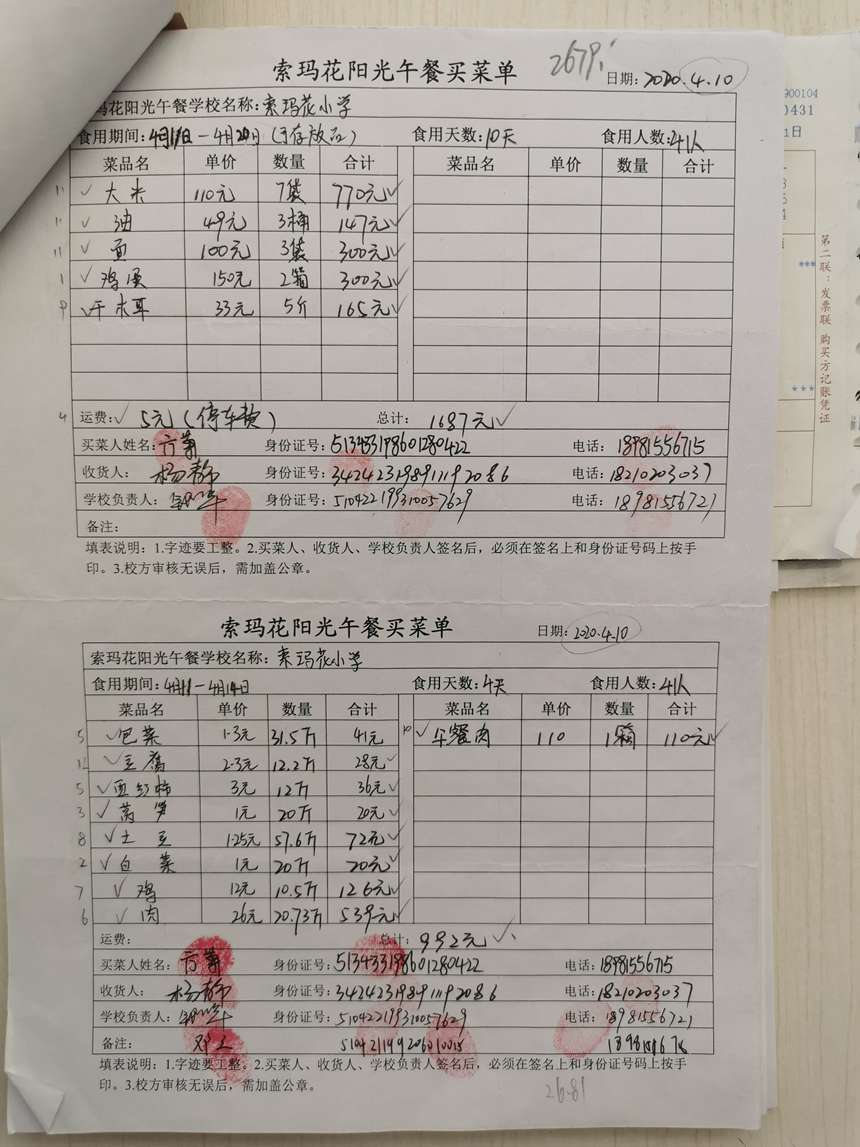 2679.
索玛花阳光午餐买菜单 日期: 2020.4.10
玛花阳光午餐学校名称: 索玛花小学
食用期间: 4月11日-4月20日 食用天数: 10天 食用人数: 41人
菜品名 单价 数量 合计 菜品名 单价 数量 合计
大米 110元 7袋 770元
油 49元 3桶 147元
面 100元 3袋 300元
鸡 150元 2箱 300元
干木耳 33元 5斤 165元
运费: 5元(停车费) 总计: 1687元
买菜人姓名: 身份证号: 513433198601280422 电话: 18981556715
收货人: 杨静 身份证号: 342423198911192086 电话: 18210203037
学校负责人: 身份证号: 510422199310057629 电话: 18981556721
备注:
填表说明: 1.字迹要工整。2.买菜人、收货人、学校负责人签名后，必须在签名上和身份证号码上按手
印。3.校方审核无误后，需加盖公章。
索玛花阳光午餐买菜单 日期: 2020.4.10
索玛花阳光午餐学校名称: 索玛花小学
食用期间: 4月11-4月14日 食用天数: 4天 食用人数: 41人
菜品名 单价 数量 合计 菜品名 单价 数量 合计
5 包菜 1.3元 31.5斤 41元 10 午餐肉 110 1箱 110元
豆腐 2.3元 12.2斤 28元
5 西红柿 3元 12斤 36元
3 莴笋 1元 20斤 20元
8 土豆 1.25元 57.6斤 72元
2 白菜 1元 20斤 20元
7 鸡 12元 10.5斤 126元
6 肉 26元 20.73斤 539元
运费: 总计: 992元
买菜人姓名: 身份证号: 513433198601280422 电话: 18981556715
收货人: 杨静 身份证号: 342423198911192086 电话: 18210203037
学校负责人: 身份证号: 510422199310057629 电话: 18981556721
备注:
填表说明: 1.字迹要工整。2.买菜人、收货人、学校负责人签名后，必须在签名上和身份证号码上按手
印。3.校方审核无误后，需加盖公章。
26.81
900104
0431
第二联:发票联 购买方记账凭证